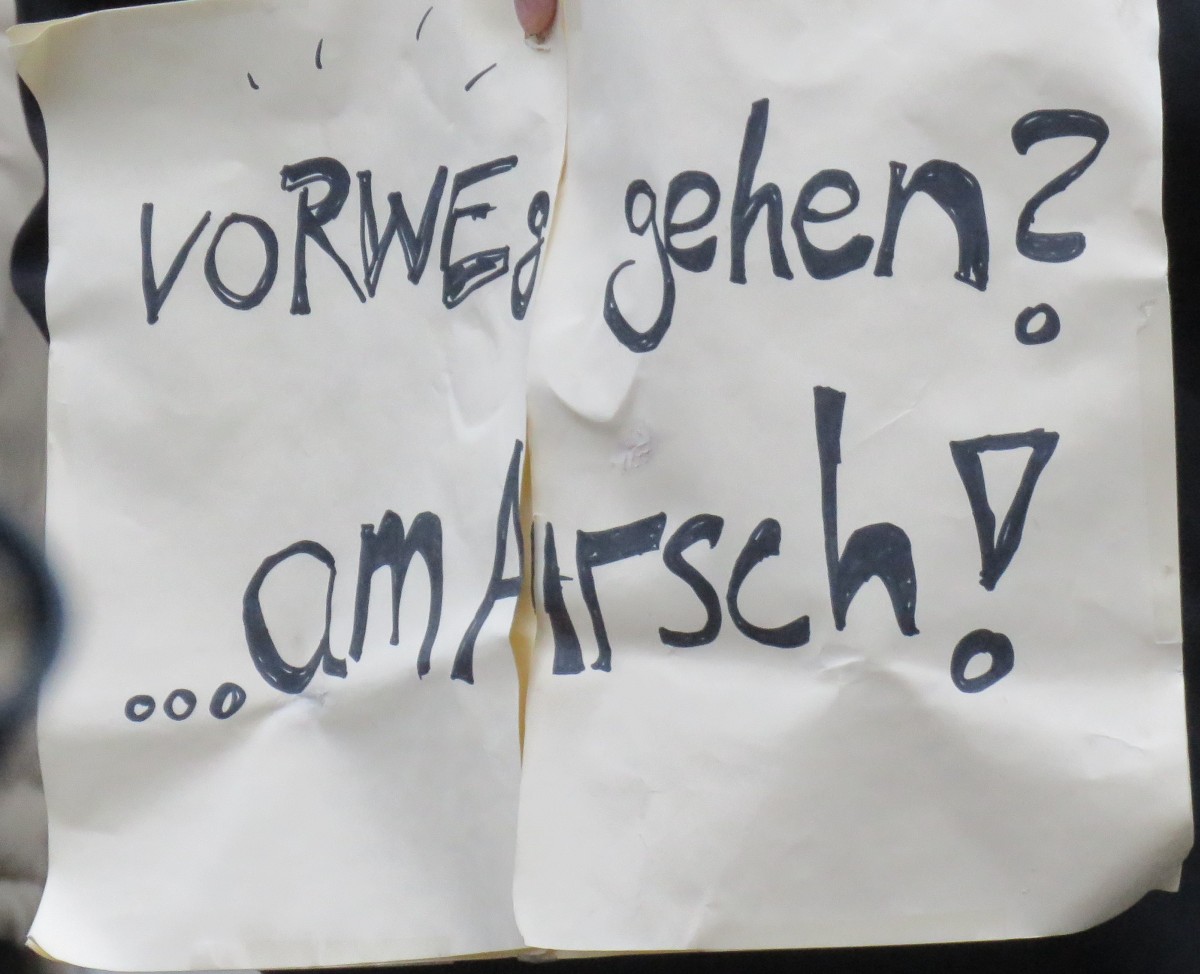 VORWEg gehen?
...am Arsch!